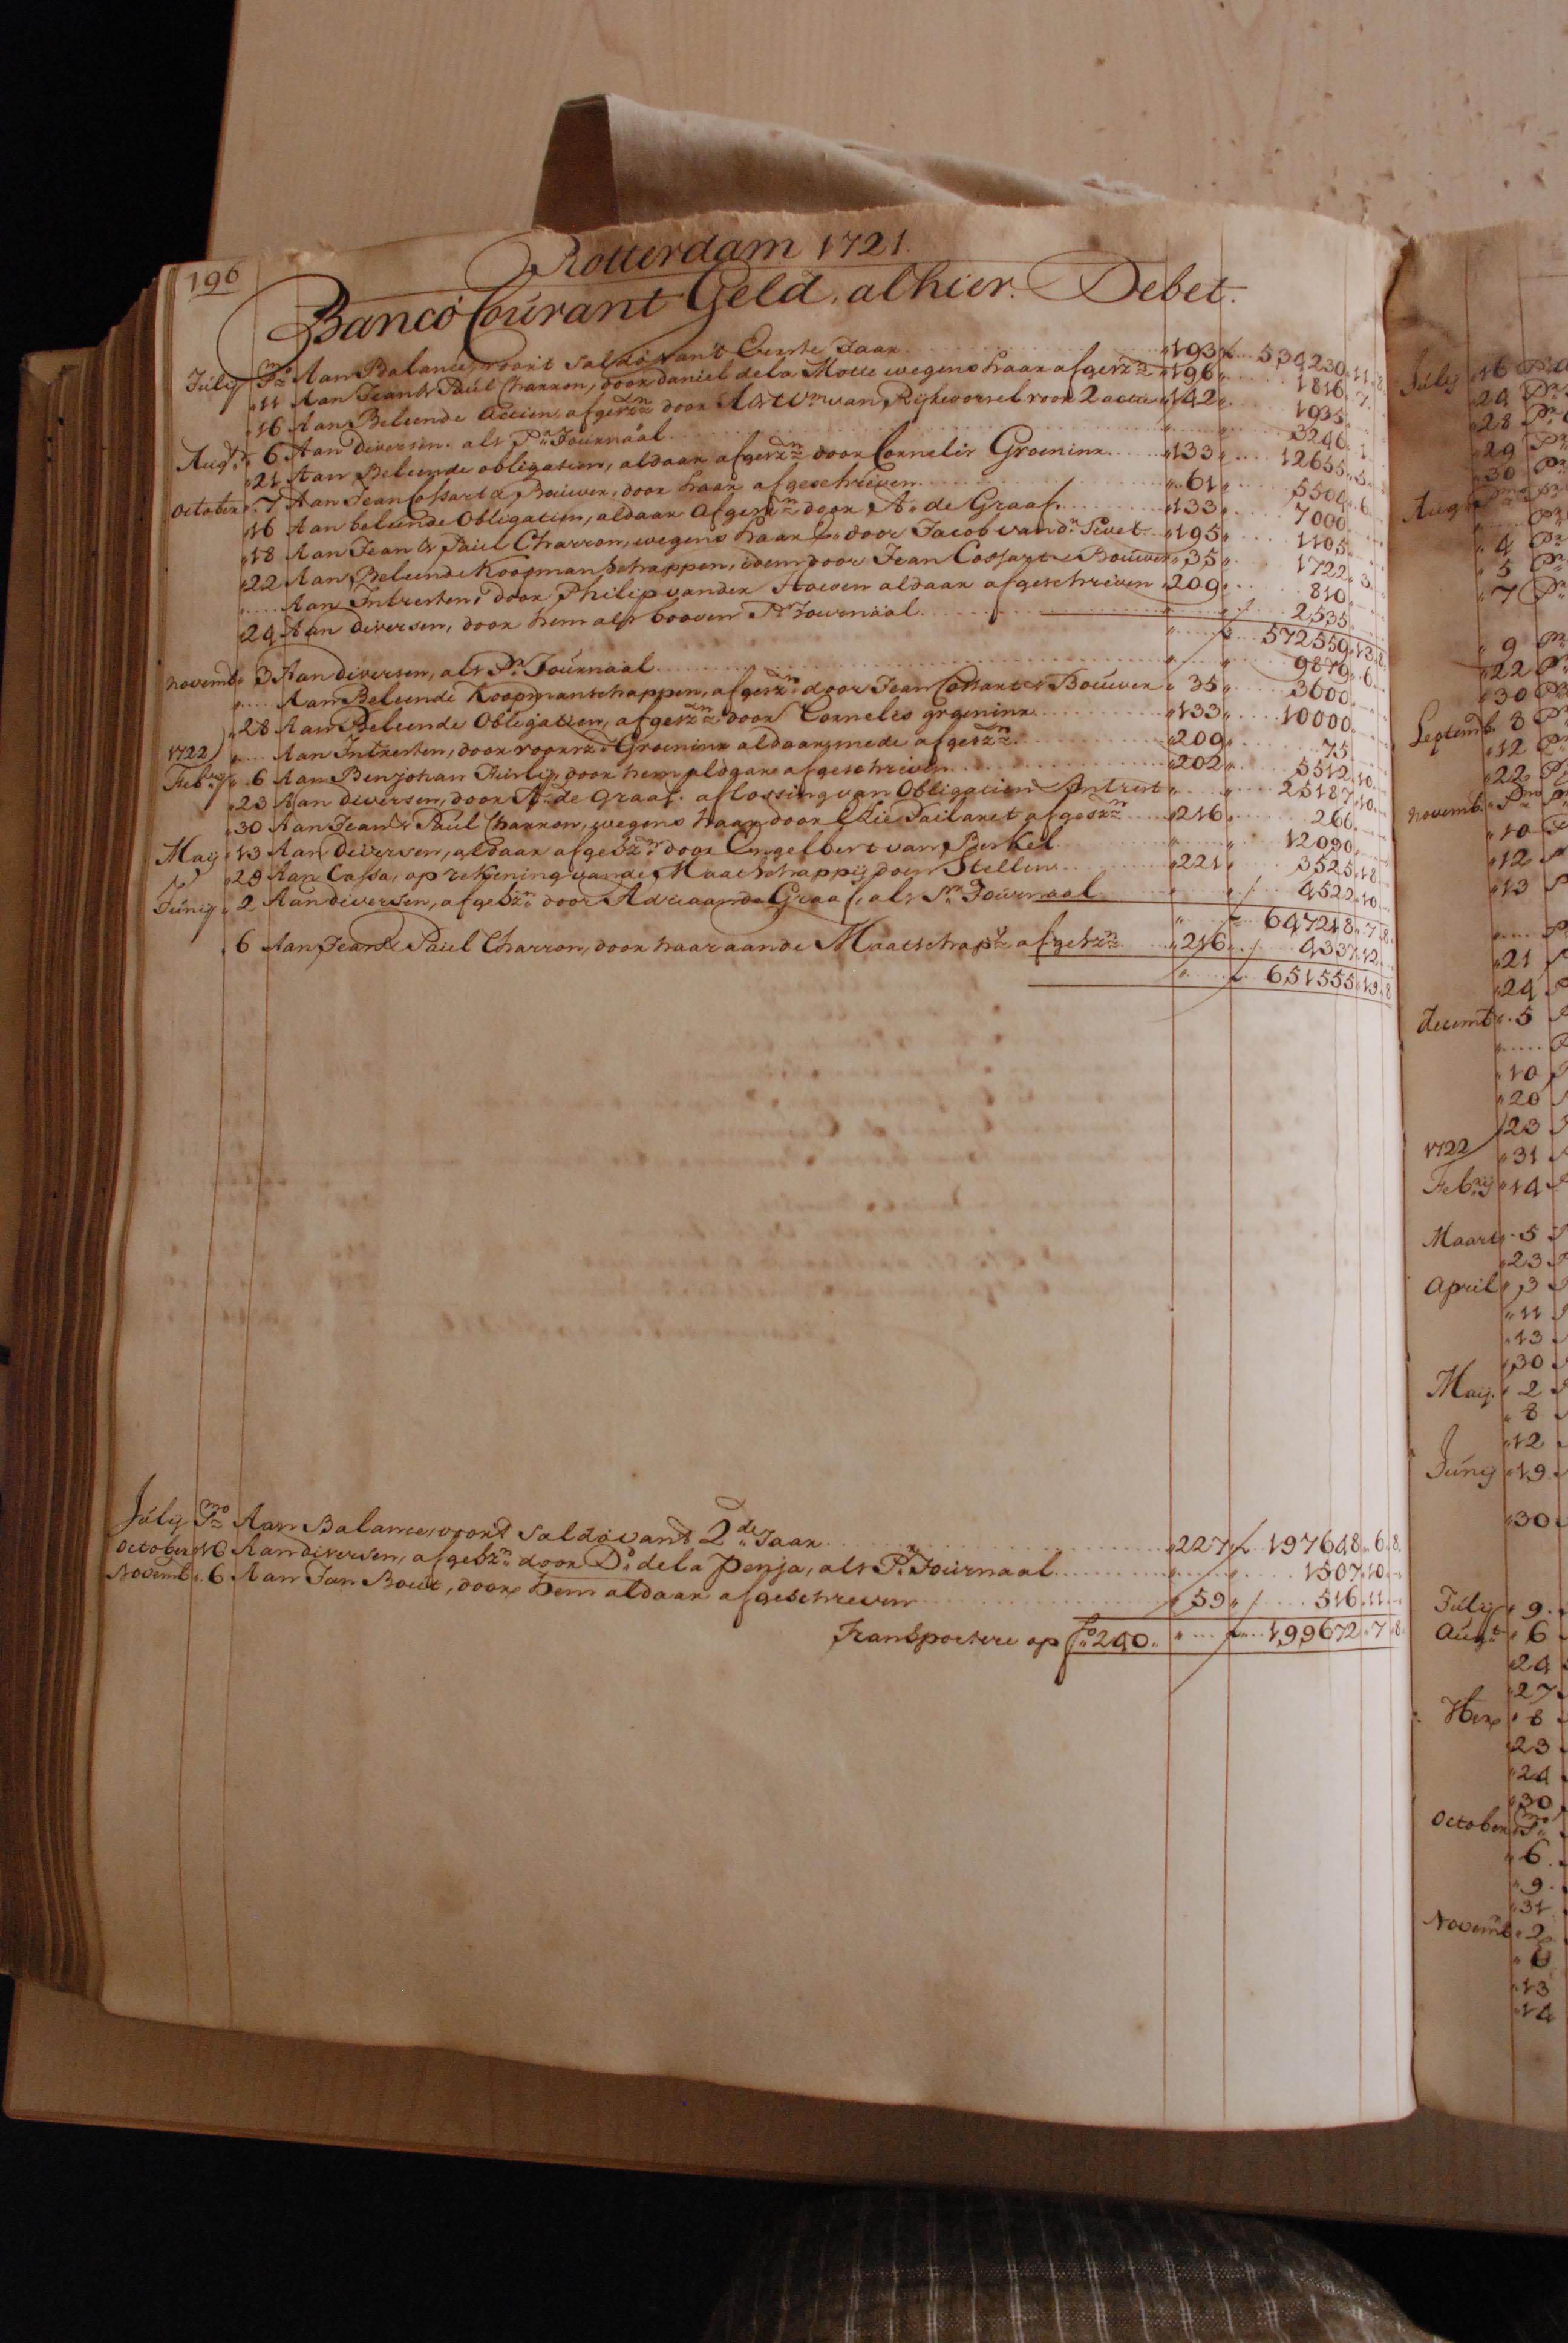 196
Rotterdam 1721.
Banco Courant Geld, alhier. Debet.
July Pmo Aan Balance, voor't Saldo van't Eerste Jaar 193 f 534230 11 8
11 Aan Jean & Paul Charron, door Daniel dela Motte wegens haar afgeschn 196 1816 7
16 Aan Beleende Actien, afgeschn door A & Wm van Rijkevorsel voor 2 actie 142 1935
Augt 6 Aan diversen, als Pr Journaal 3246 1
21 Aan Beleende obligatien, aldaar afgeschn door Cornelis Groeninx 133 12655 5
October 7 Aan Jean Cossart & Bouwer, door haar afgeschreven 61 5504 6
16 Aan beleende Obligatien, aldaar afgeschn door A. de Graaf 133 7000
18 Aan Jean & Paul Charron, wegens haar door Jacob vandr 195 1105
22 Aan Beleende Koopmanschappen, idem door Jean Cossart & Bouwer 35 1722 3
Aan Intresten, door Philip vander Hoeven aldaar afgeschreven 209 810
24 Aan diversen, door hem als booven Pr Journaal 2535
f 572559 13 8
Novembr 3 Aan diversen, als Pr Journaal 9879 6
Aan Beleende Koopmanschappen, afgeschn door Jean Cossart & Bouwer 35 3600
28 Aan Beleende Obligatien, afgeschn door Cornelis groeninx 133 10000
1722 Aan Intresten, door voornd Groeninx aldaar mede afgeschn 209 75
Febry 6 Aan Benjohan Furly, door hem aldaar afgeschreven 202 5512 10
23 Aan diversen, door A. de Graaf aflossing van Obligatie & Intrest 25187 10
30 Aan Jean & Paul Charron, wegens haar door Elie afgeschn 216 266
May 13 Aan diversen, aldaar afgeschn door Engelbert van Berkel 12090
29 Aan Cassa, op rekening vande Maatschappij doen Stellen 221 3525 18
Junij 2 Aan diversen, afgeschn door Adriaan de Graaf, als Pr Journaal 4522 10
f 647218 7 8
6 Aan Jean & Paul Charron, door haar aan de Maatschapy afgeschn 216 4337 12
f 651555 19 8
July Pmo Aan Balance, voor't Saldo vant 2de Jaar 227 f 197648 6 8
October 16 Aan diversen, afgeschn door Do dela Penja, als Pr Journaal 1507 10
Novembr 6 Aan Jan Bout, door hem aldaar afgeschreven 59 516 11
Transportere op fo 240 f 199672 7 8
July 16
24
28
29
30
Aug Pmo
4
5
7
9
22
30
Septemb. 3
12
22
Novemb. Pmo
10
12
13
21
24
Decemb 5
10
20
23
1722 31
Febry 14
Maart 5
23
April 3
11
13
30
May 2
8
12
Junij 19
30
July 9
Augt 6
24
27
8
23
24
30
October Pmo
6
9
31
Novemb 2
6
13
14